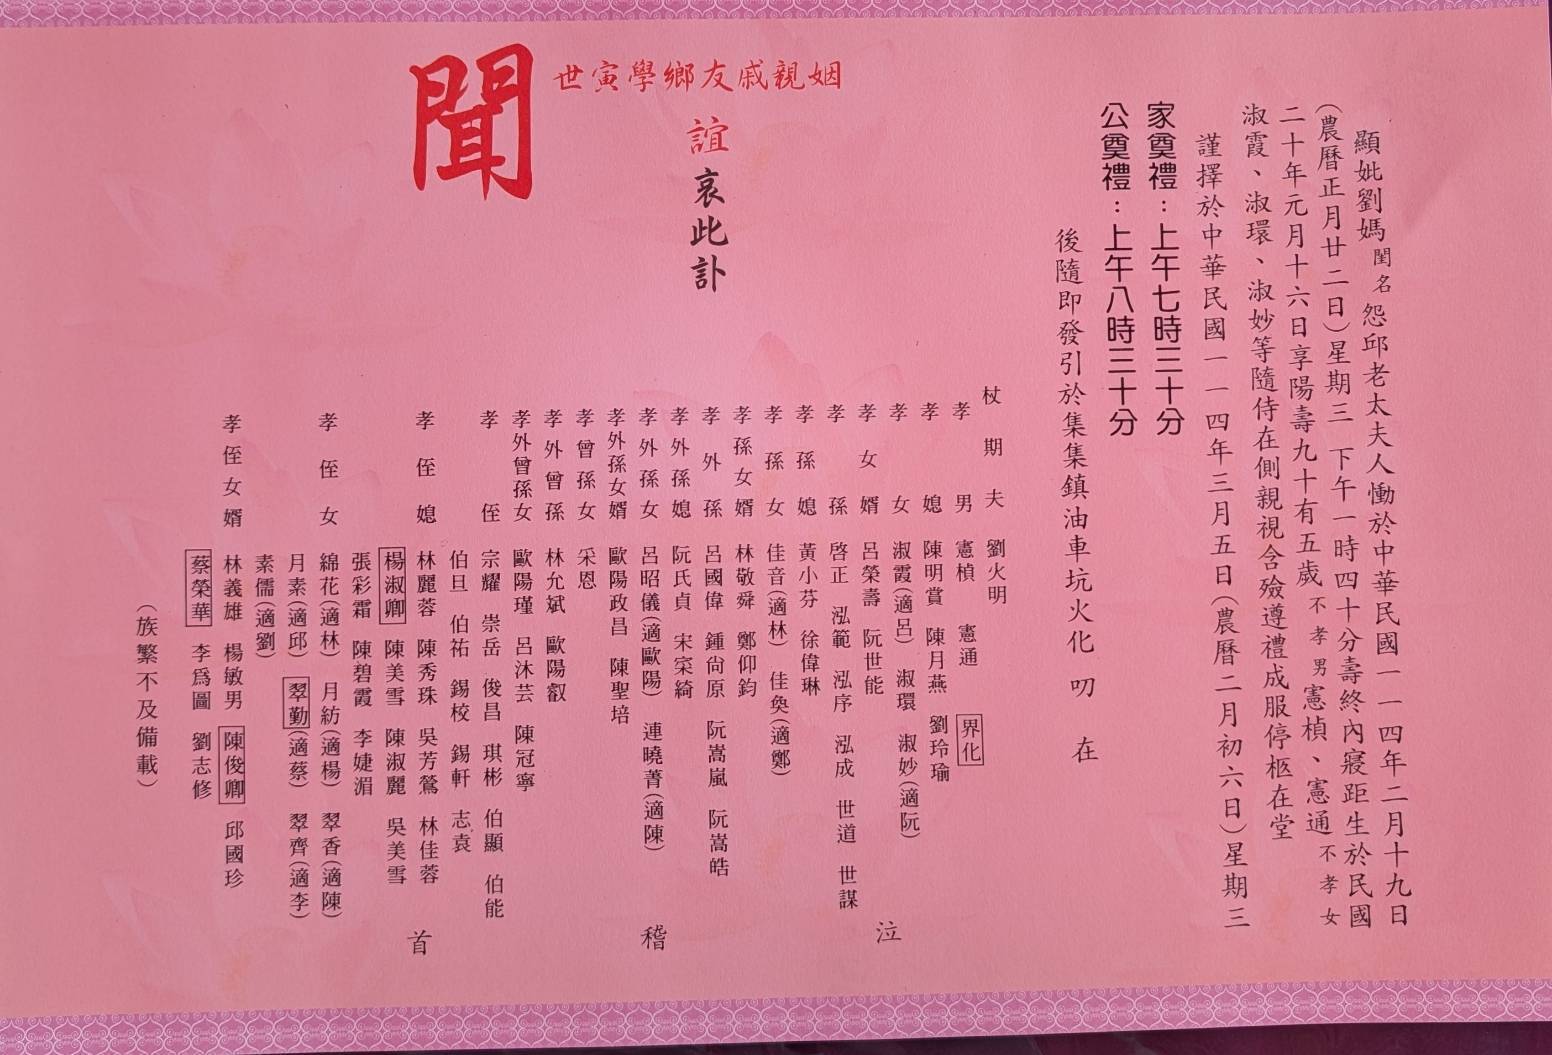 顯妣劉媽閨名怨邱老太夫人慟於中華民國一一四年二月十九日
(農曆正月廿二日)星期三 下午一時四十分壽終內寢距生於民國
二十年元月十六日享陽壽九十有五歲不孝男憲楨、憲通不孝女
淑霞、淑環、淑妙等隨侍在側親視含殮遵禮成服停柩在堂
謹擇於中華民國一一四年三月五日(農曆二月初六日)星期三
家奠禮：上午七時三十分
公奠禮：上午八時三十分
後隨即發引於集集鎮油車坑火化 叨 在
姻親戚友鄉學寅世
誼哀此訃
聞
杖期夫 劉火明
孝男 憲楨 憲通 界化
孝媳 陳明賞 陳月燕 劉玲瑜
孝女 淑霞(適呂) 淑環 淑妙(適阮)
孝女婿 呂榮壽 阮世能
孝孫 啓正 泓範 泓序 泓成 世道 世謀
孝孫媳 黃小芬 徐偉琳
孝孫女 佳音(適林) 佳奐(適鄭)
孝孫女婿 林敬舜 鄭仰鈞
孝外孫 呂國偉 鍾尙原 阮嵩嵐 阮嵩皓
孝外孫媳 阮氏貞 宋寀綺
孝外孫女 呂昭儀(適歐陽) 連曉菁(適陳)
孝外孫女婿 歐陽政昌 陳聖培
孝曾孫女 采恩
孝外曾孫 林允斌 歐陽叡
孝外曾孫女 歐陽瑾 呂沐芸 陳冠寧
孝侄 宗耀 崇岳 俊昌 琪彬 伯顯 伯能
伯旦 伯祐 錫校 錫軒 志袁
孝侄媳 林麗蓉 陳秀珠 吳芳鶯 林佳蓉
楊淑卿 陳美雪 陳淑麗 吳美雪
張彩霜 陳碧霞 李婕湄
孝侄女 綿花(適林) 月紡(適楊) 翠香(適陳)
月素(適邱) 翠勤(適蔡) 翠齊(適李)
素儒(適劉)
孝侄女婿 林義雄 楊敏男 陳俊卿 邱國珍
蔡榮華 李爲圖 劉志修
泣
稽
首
(族繁不及備載)